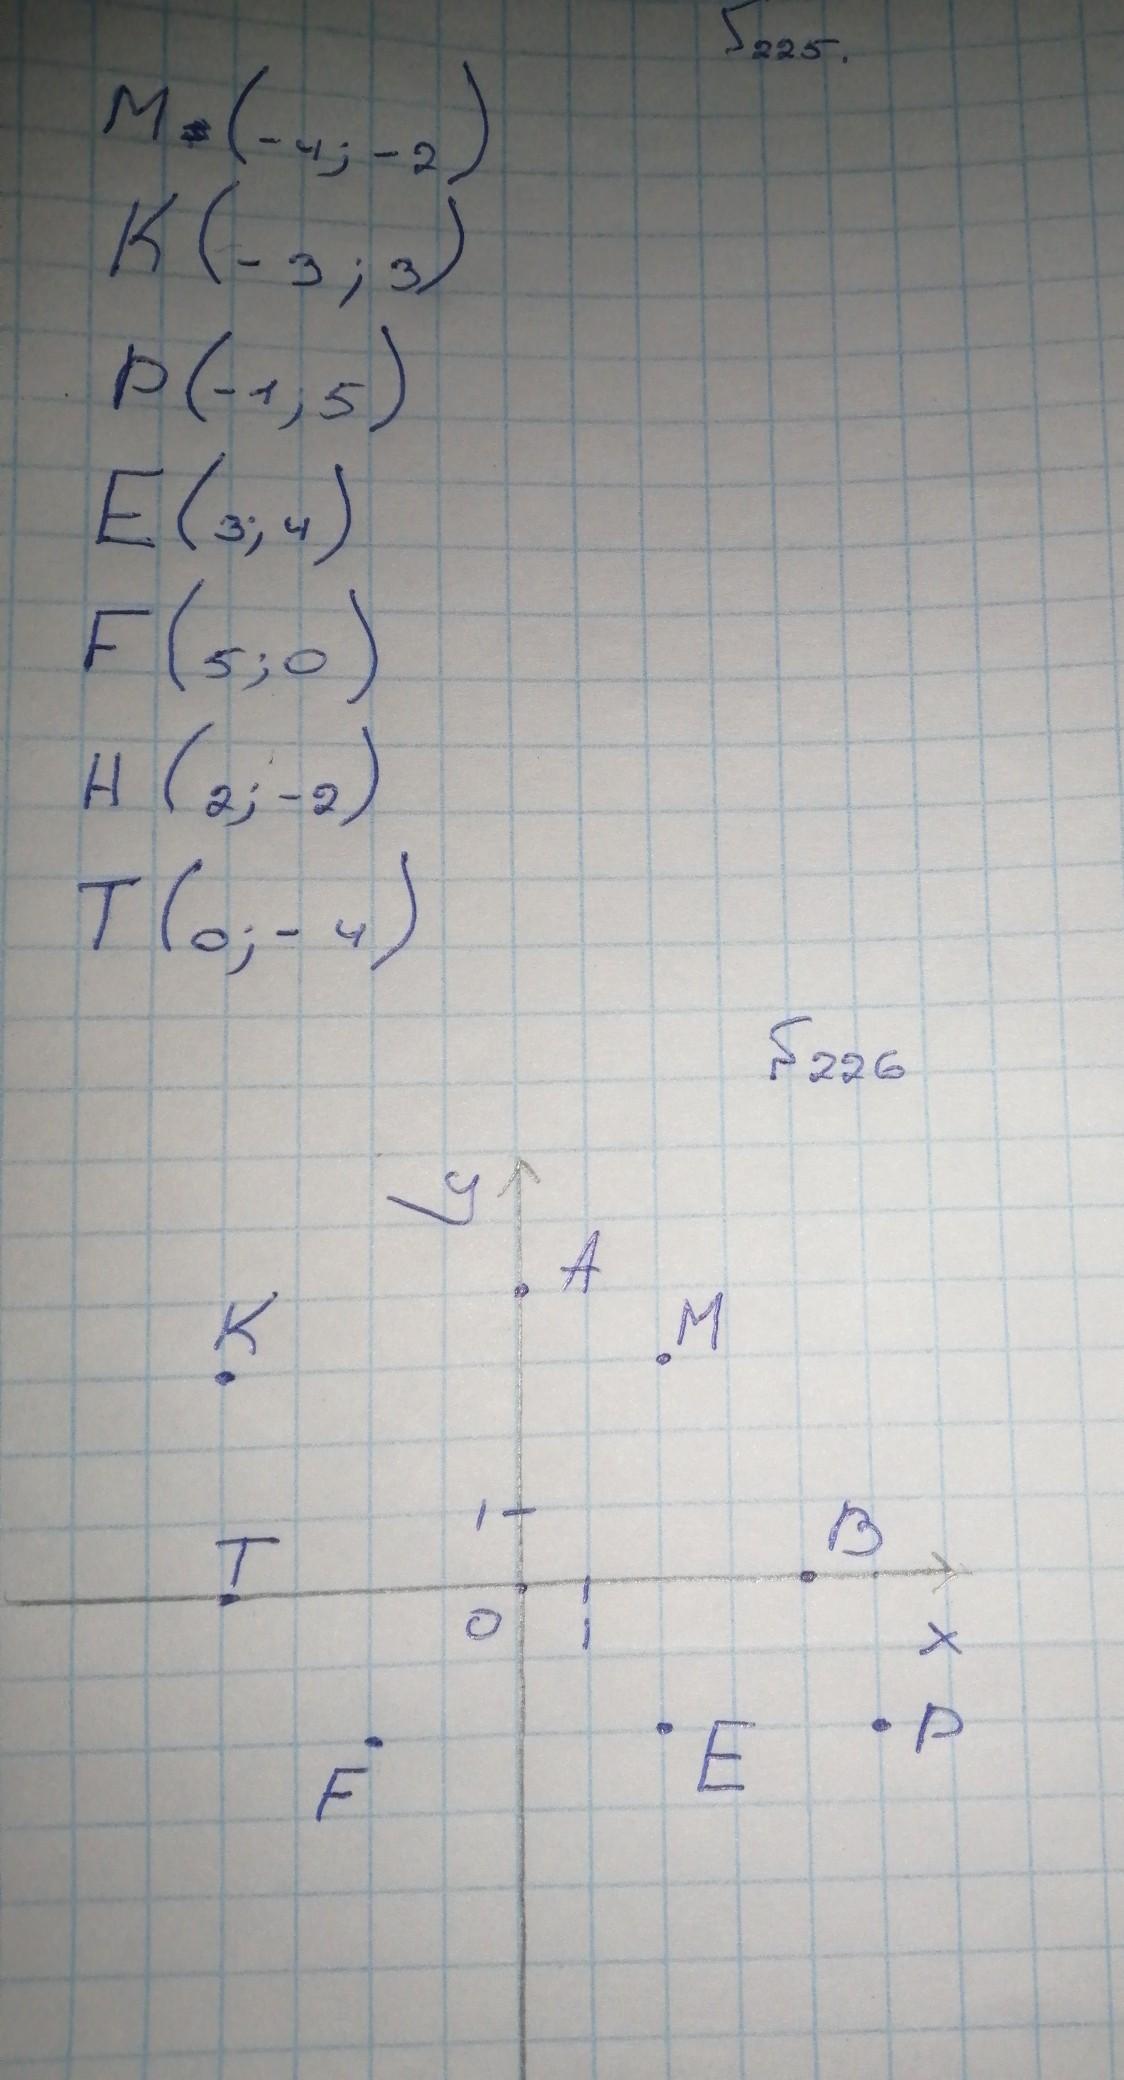 225.
M (-4; -2)
K (-3; 3)
P (-1; 5)
E (3; 4)
F (5; 0)
H (2; -2)
T (0; -4)
226
y
A
K
M
1
T
B
0
1
x
F
E
P